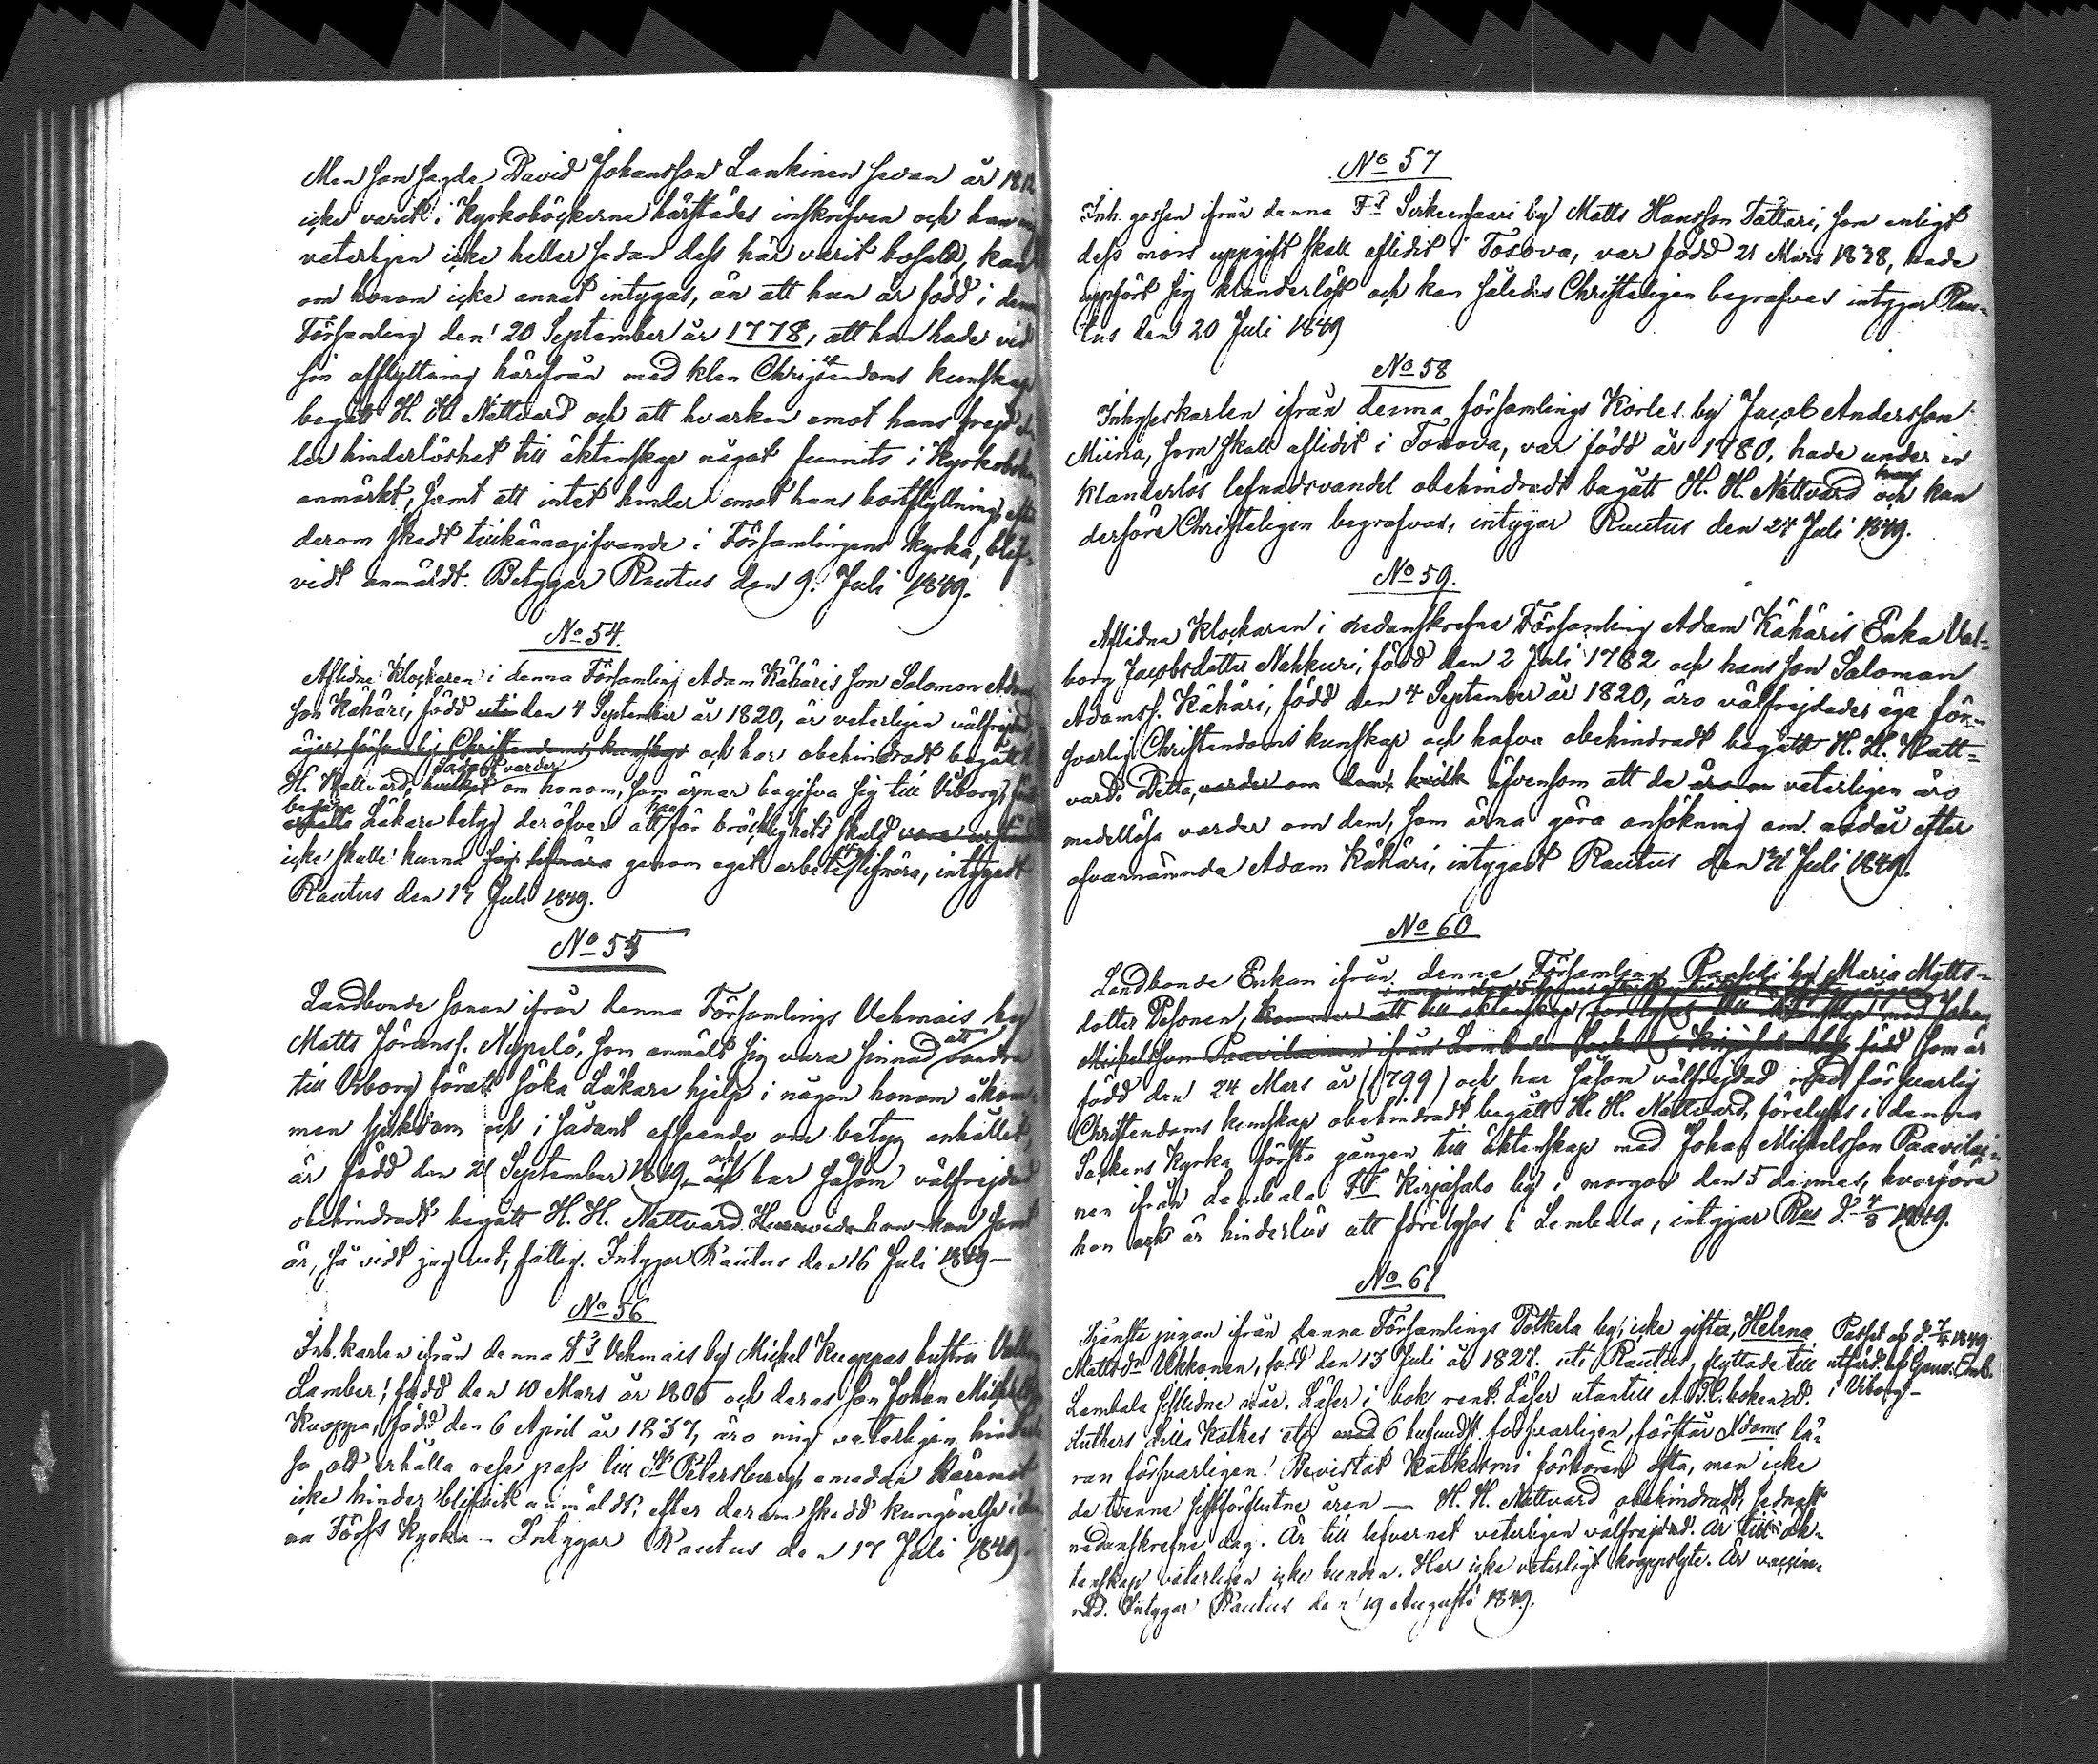 Men som sagde David Johansson Lankinen sedan år 1812
icke varit i Kyrkoböckerne härstädes inskrifven och han
veterligen icke heller sedan dess här varit bosatt, kan
om honom icke annat intygas, än att han är född i denna
Församling den 20 September år 1778, att han hade vid
sin afflyttning härifrån med klen Christendoms kunskap
begått H. H. Nattvard och att hvarken emot hans frejd el
ler hinderlöshet till äktenskap något funnits i Kyrkoboken
anmärkt, samt att intet hinder emot hans bortflyttning, efter
derom skedt tillkännagifvande i Församlingens kyrka, blif-
vidt anmäldt. Betygar Rautus den 9. Juli 1849.
No 54.
Aflidne Klockaren i denna Församling Adam Kähäris son Salomon Adams
son Kähäri, född den 4 September år 1820, är veterligen välfrejdad
äger försvarlig Christendoms kunskap och har obehindradt begått H.
sådant varder
H. Nattvärd, hvilket om honom, som ärnar begifva sig till Viborg,
begära han
erhålla Läkare betyg deröfver att för bräcklighets skuld
icke skulle kunna genom eget arbete lifnära, intygadt
Rautus den 13 Juli 1849.
No 55
Landbonde sonen ifrån denna Församlings Vehmais by
Matts Jöranss. Nypelö, som anmält sig vara sinnad att vandra
till Viborg föratt söka Läkare hjelp i någon honom åkom-
men sjukdom och i sådant afseende om betyg anhållet,
är född den 21 September 1819, och har såsom välfrejdad
obehindradt begått H. H. Nattvard. han kan samt
är, så vidt jag vet, fattig. Intygar Rautus den 16 Juli 1849 —
No 56
Inh. karlen ifrån denna Vehmais by Michel Kuoppas hustru
Lamber, född den 10 Mars år 1805 och deras son Johan Michelss
Kuoppa, född den 6 April år 1837, äro mig veterligen
att erhålla rese pass till St Petersburg, emedan däremot
icke hinder blifvit anmäldt, efter derom skedd kungörelse i den
na Förss Kyrka — Intygar Rautus den 17 Juli 1849
No 57
Inh. gossen ifrån denna Fs Sirkiensaari by Matts Hansson Tattari, som enligt
dess mors uppgift skall aflidit i Toxova, var född 21 Mars 1838, hade
uppfört sig klanderlöst och kan således Christeligen begrafvas intygar Rau-
tus den 20 Juli 1849
No 58
Inhyseskarlen ifrån denna församlings Korles by Jacob Andersson
Miina, som skall aflidit i Toxova, var född år 1780, hade under en
klanderlös lefnadsvandel obehindradt begått H. H. Nattvard och kan
derföre Christeligen begrafvas, intygar Rautus den 27 Juli 1849.
No 59.
Aflidna Klockaren i nedanskrefna Församling Adam Kähäris Enka Val-
borg Jacobsdotter Nehkuri, född den 2 Juli 1782 och hans son Saloman
Adamss. Kähäri, född den 4 September år 1820, äro välfrejdade, äga för-
svarlig Christendoms kunskap och hafva obehindradt begått H. H. Natt-
vard. Detta, varder om dem, äfvensom att de veterligen äro
medellösa varder om dem, som ärna göra ansökning om nådår efter
ofvannämnda Adam Kähäri, intygadt Rautus den 31 Juli 1849.
No 60
Landbonde Enkan ifrån denna Församlings Raasuli by Maria Matts-
dotter Pesonen, kommer att till äktenskap förelysas till äktenskap med Johan
Michelsson Paavilainen ifrån Lembala Sockens Kirjasalo by född som är
född den 24 Mars år (1799) och har såsom välfrejdad med försvarlig
Christendoms kunskap obehindradt begått H. H. Nattvard, förelyses i denna
Sockens Kyrka första gången till äktenskap med Johan Michelsson Paavilai-
nen ifrån Lembala Fs Kirjasalo by i morgon den 5 dennes, hvarföre
hon ock är hinderlös att förelysas i Lembala, intygar Rus d. 4/8 1849.
No 61
Tjenste pigan ifrån denna Församlings Potkela by, icke giftea, Helena
Mattsdr Ukkonen, född den 13 Juli år 1827. uti Rautus, flyttade till
Lembala sistledne vår. Läser i bok rent. Läser utantill A.B.C. boken d.
Luthers Lilla Kathes etc. 6 hufvudst. försvarligen, förstår Xdoms lä-
ran försvarligen. Bevistat Katkismi förhören ofta, men icke
de trenne sistförflutne åren — H. H. Nattvard obehindradt, sednast
nedanskrefne dag. Är till lefvernet veterligen välfrejdad. Är till äk-
tenskap veterligen icke bunden. Har icke veterligt kroppslyte. Är vaccine-
rad. Intygar Rautus den 19 Augusti 1849.
Passet af d. 7/9 1849
utfärd. af Gouv. Emb.
i Viborg —